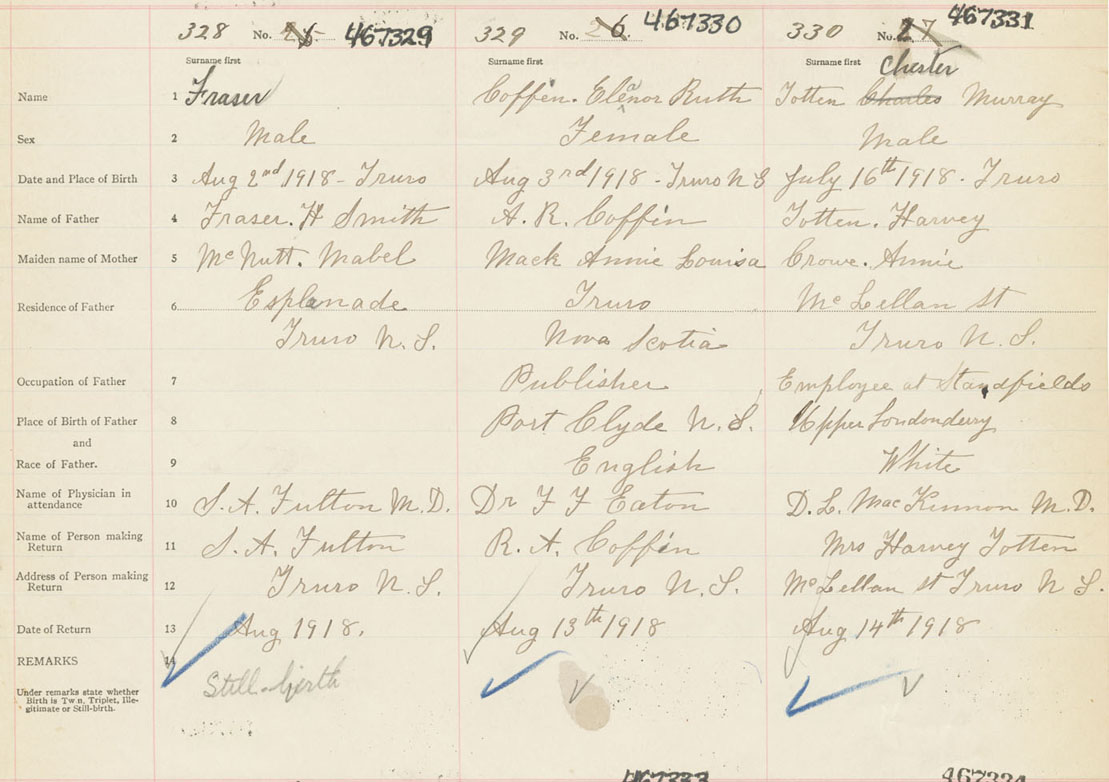 328 No. 25 467329 329 No. 26 467330 330 No. 27 467331
Surname first Surname first Surname first Chester
Name 1 Fraser Coffin. Elenor Ruth Totten Charles Murray
a
Sex 2 Male Female Male
Date and Place of Birth 3 Aug 2nd 1918 - Truro Aug 3rd 1918 - Truro N S July 16th 1918 - Truro
Name of Father 4 Fraser. H Smith A. R. Coffin Totten. Harvey
Maiden name of Mother 5 McNutt. Mabel Mack Annie Louisa Crowe. Annie
Residence of Father 6 Esplanade Truro McLellan St
Truro N. S. Nova Scotia Truro N. S.
Occupation of Father 7 Publisher Employee at Standfields
Place of Birth of Father 8 Port Clyde N. S. Upper Londonderry
and
Race of Father. 9 English White
Name of Physician in
attendance 10 S. A. Fulton M. D. Dr F F Eaton D. L. MacKinnon M. D.
Name of Person making
Return 11 S. A. Fulton R. A. Coffin Mrs Harvey Totten
Address of Person making
Return 12 Truro N. S. Truro N. S. McLellan st Truro N S.
Date of Return 13 Aug 1918. Aug 13th 1918 Aug 14th 1918
REMARKS 14
Still-birth
Under remarks state whether
Birth is Twin, Triplet, Ille-
gitimate or Still-birth.